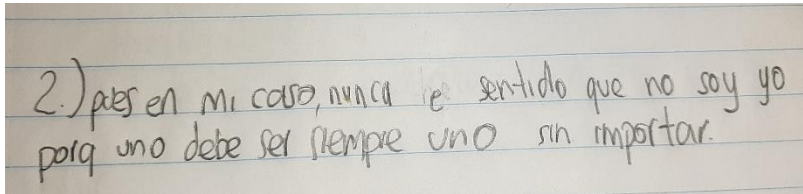 2.) pues en mi caso, nunca e sentido que no soy yo
porq uno debe ser siempre uno sin importar.